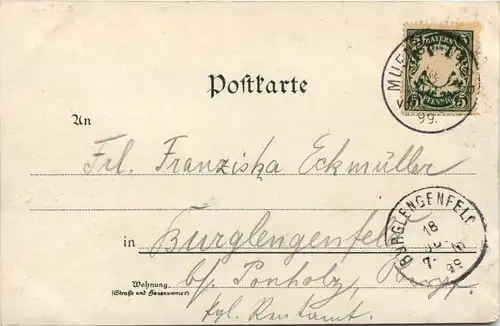 BAYERN
5 5
PFENNIG
MUE
99.
Postkarte
An
Frl. Franziska Eckmüller
in Burglengenfeld
BURGLENGENFELD
18
7-
99
b/. Ponholz,
Wohnung
(Straße und Hausnummer)
kgl. Rentamt.